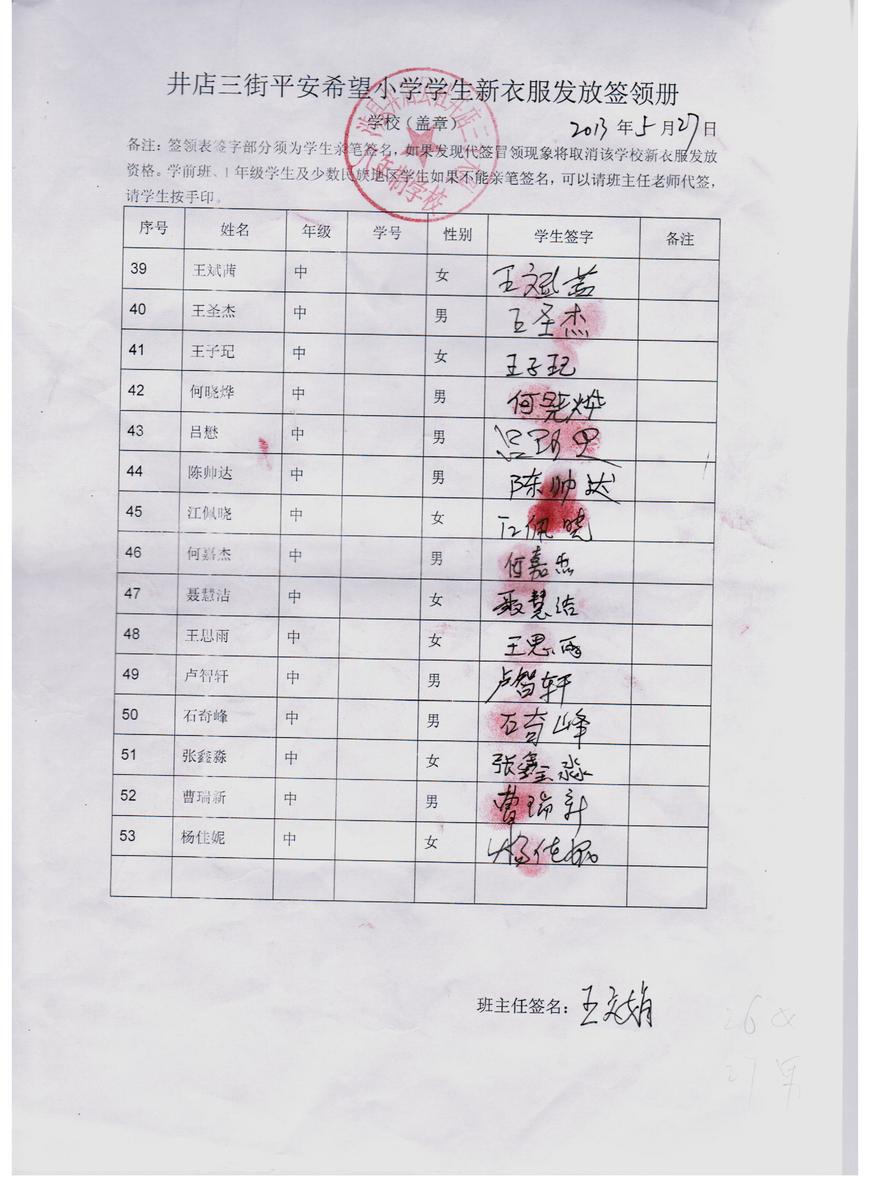 井店三街平安希望小学学生新衣服发放签领册
学校（盖章） 2013 年 5 月 27 日
备注：签领表签字部分须为学生亲笔签名，如果发现代签冒领现象将取消该学校新衣服发放
资格。学前班、1 年级学生及少数民族地区学生如果不能亲笔签名，可以请班主任老师代签，
请学生按手印。
序号 姓名 年级 学号 性别 学生签字 备注
39 王斌茜 中 女 王斌茜
40 王圣杰 中 男 王圣杰
41 王子玘 中 女 王子玘
42 何晓烨 中 男 何晓烨
43 吕懋 中 男 吕
44 陈帅达 中 男 陈帅达
45 江佩晓 中 女 江佩晓
46 何嘉杰 中 男 何嘉杰
47 聂慧洁 中 女 聂慧洁
48 王思雨 中 女 王思雨
49 卢智轩 中 男 卢智轩
50 石奇峰 中 男 石奇峰
51 张鑫淼 中 女 张鑫淼
52 曹瑞新 中 男 曹瑞新
53 杨佳妮 中 女 杨佳妮
班主任签名：王文娟
26 女
27 男